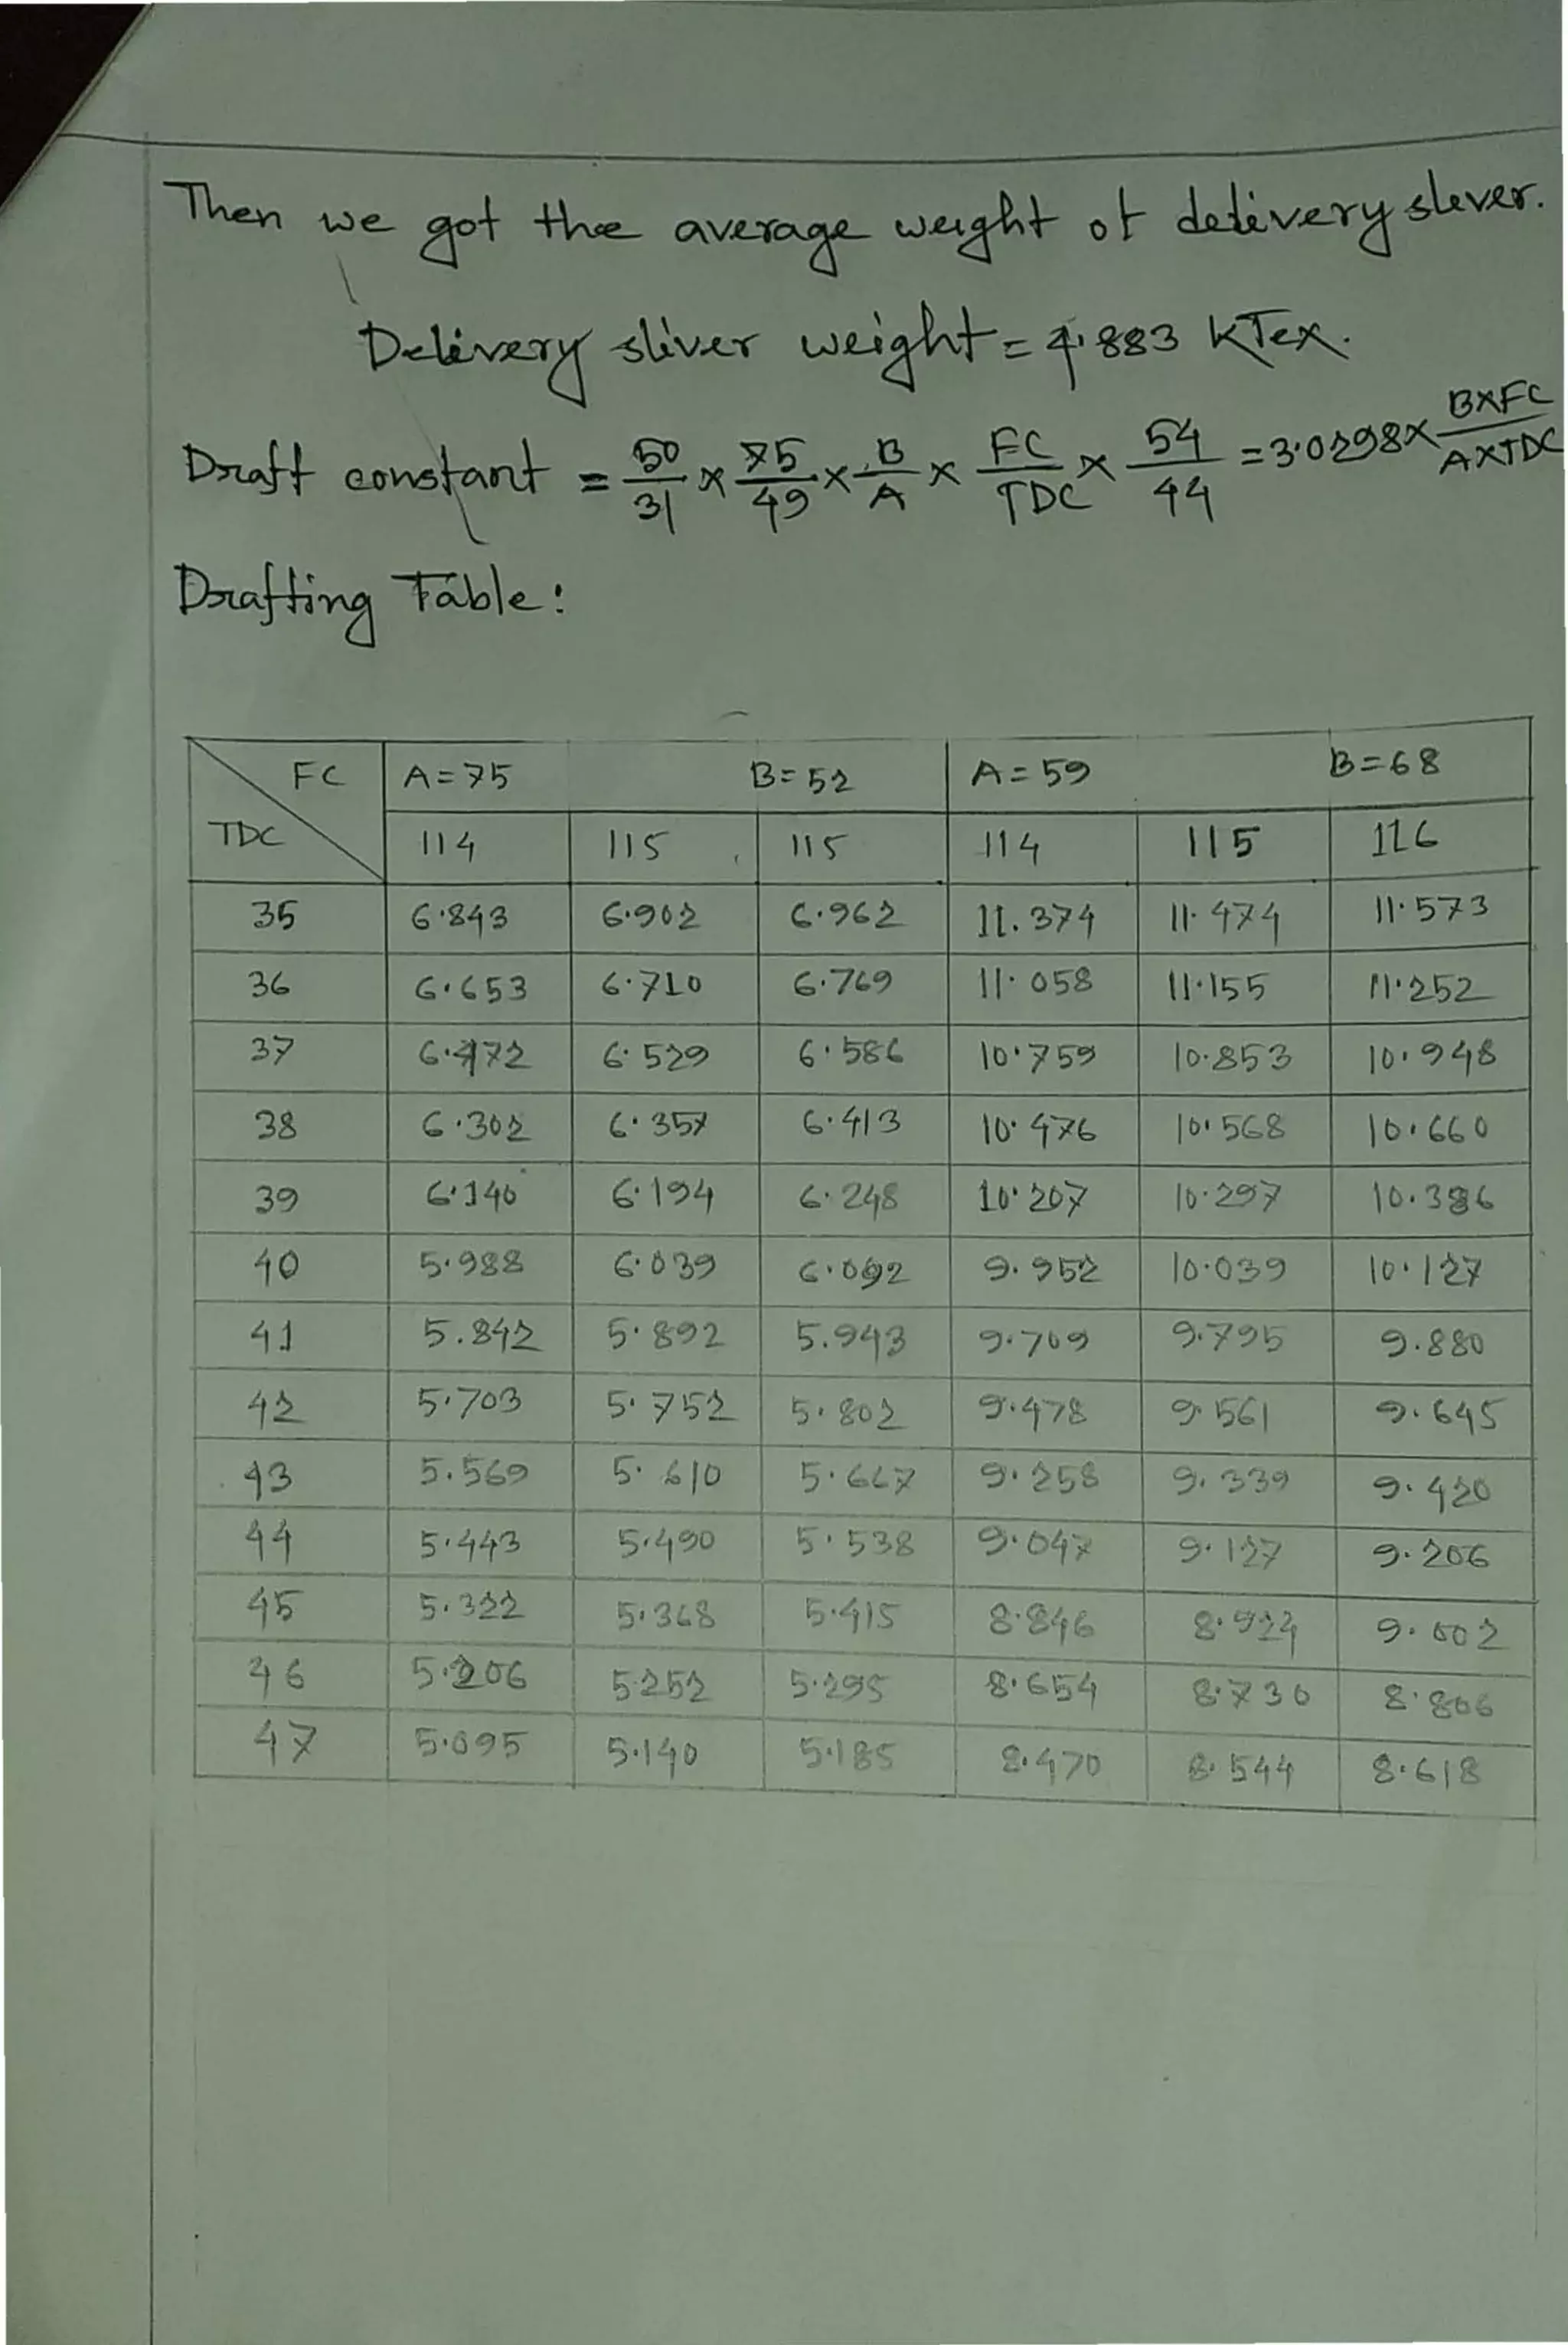 Then we got the average weight of delivery sliver.
Delivery sliver weight = 4.883 KTex.
Draft constant = 50/31 × 75/49 × B/A × FC/TDC × 54/44 = 3.0298 × B×FC/A×TDC
Drafting Table:
FC A=75 B=52 A=59 B=68
TDC 114 115 115 114 115 116
35 6.843 6.902 6.962 11.374 11.474 11.573
36 6.653 6.710 6.769 11.058 11.155 11.252
37 6.472 6.529 6.586 10.759 10.853 10.948
38 6.302 6.357 6.413 10.476 10.568 10.660
39 6.140 6.194 6.248 10.207 10.297 10.386
40 5.988 6.039 6.092 9.952 10.039 10.127
41 5.842 5.892 5.943 9.709 9.795 9.880
42 5.703 5.752 5.802 9.478 9.561 9.645
43 5.569 5.610 5.667 9.258 9.339 9.420
44 5.443 5.490 5.538 9.047 9.127 9.206
45 5.322 5.368 5.415 8.846 8.924 9.002
46 5.206 5.252 5.295 8.654 8.730 8.806
47 5.095 5.140 5.185 8.470 8.544 8.618